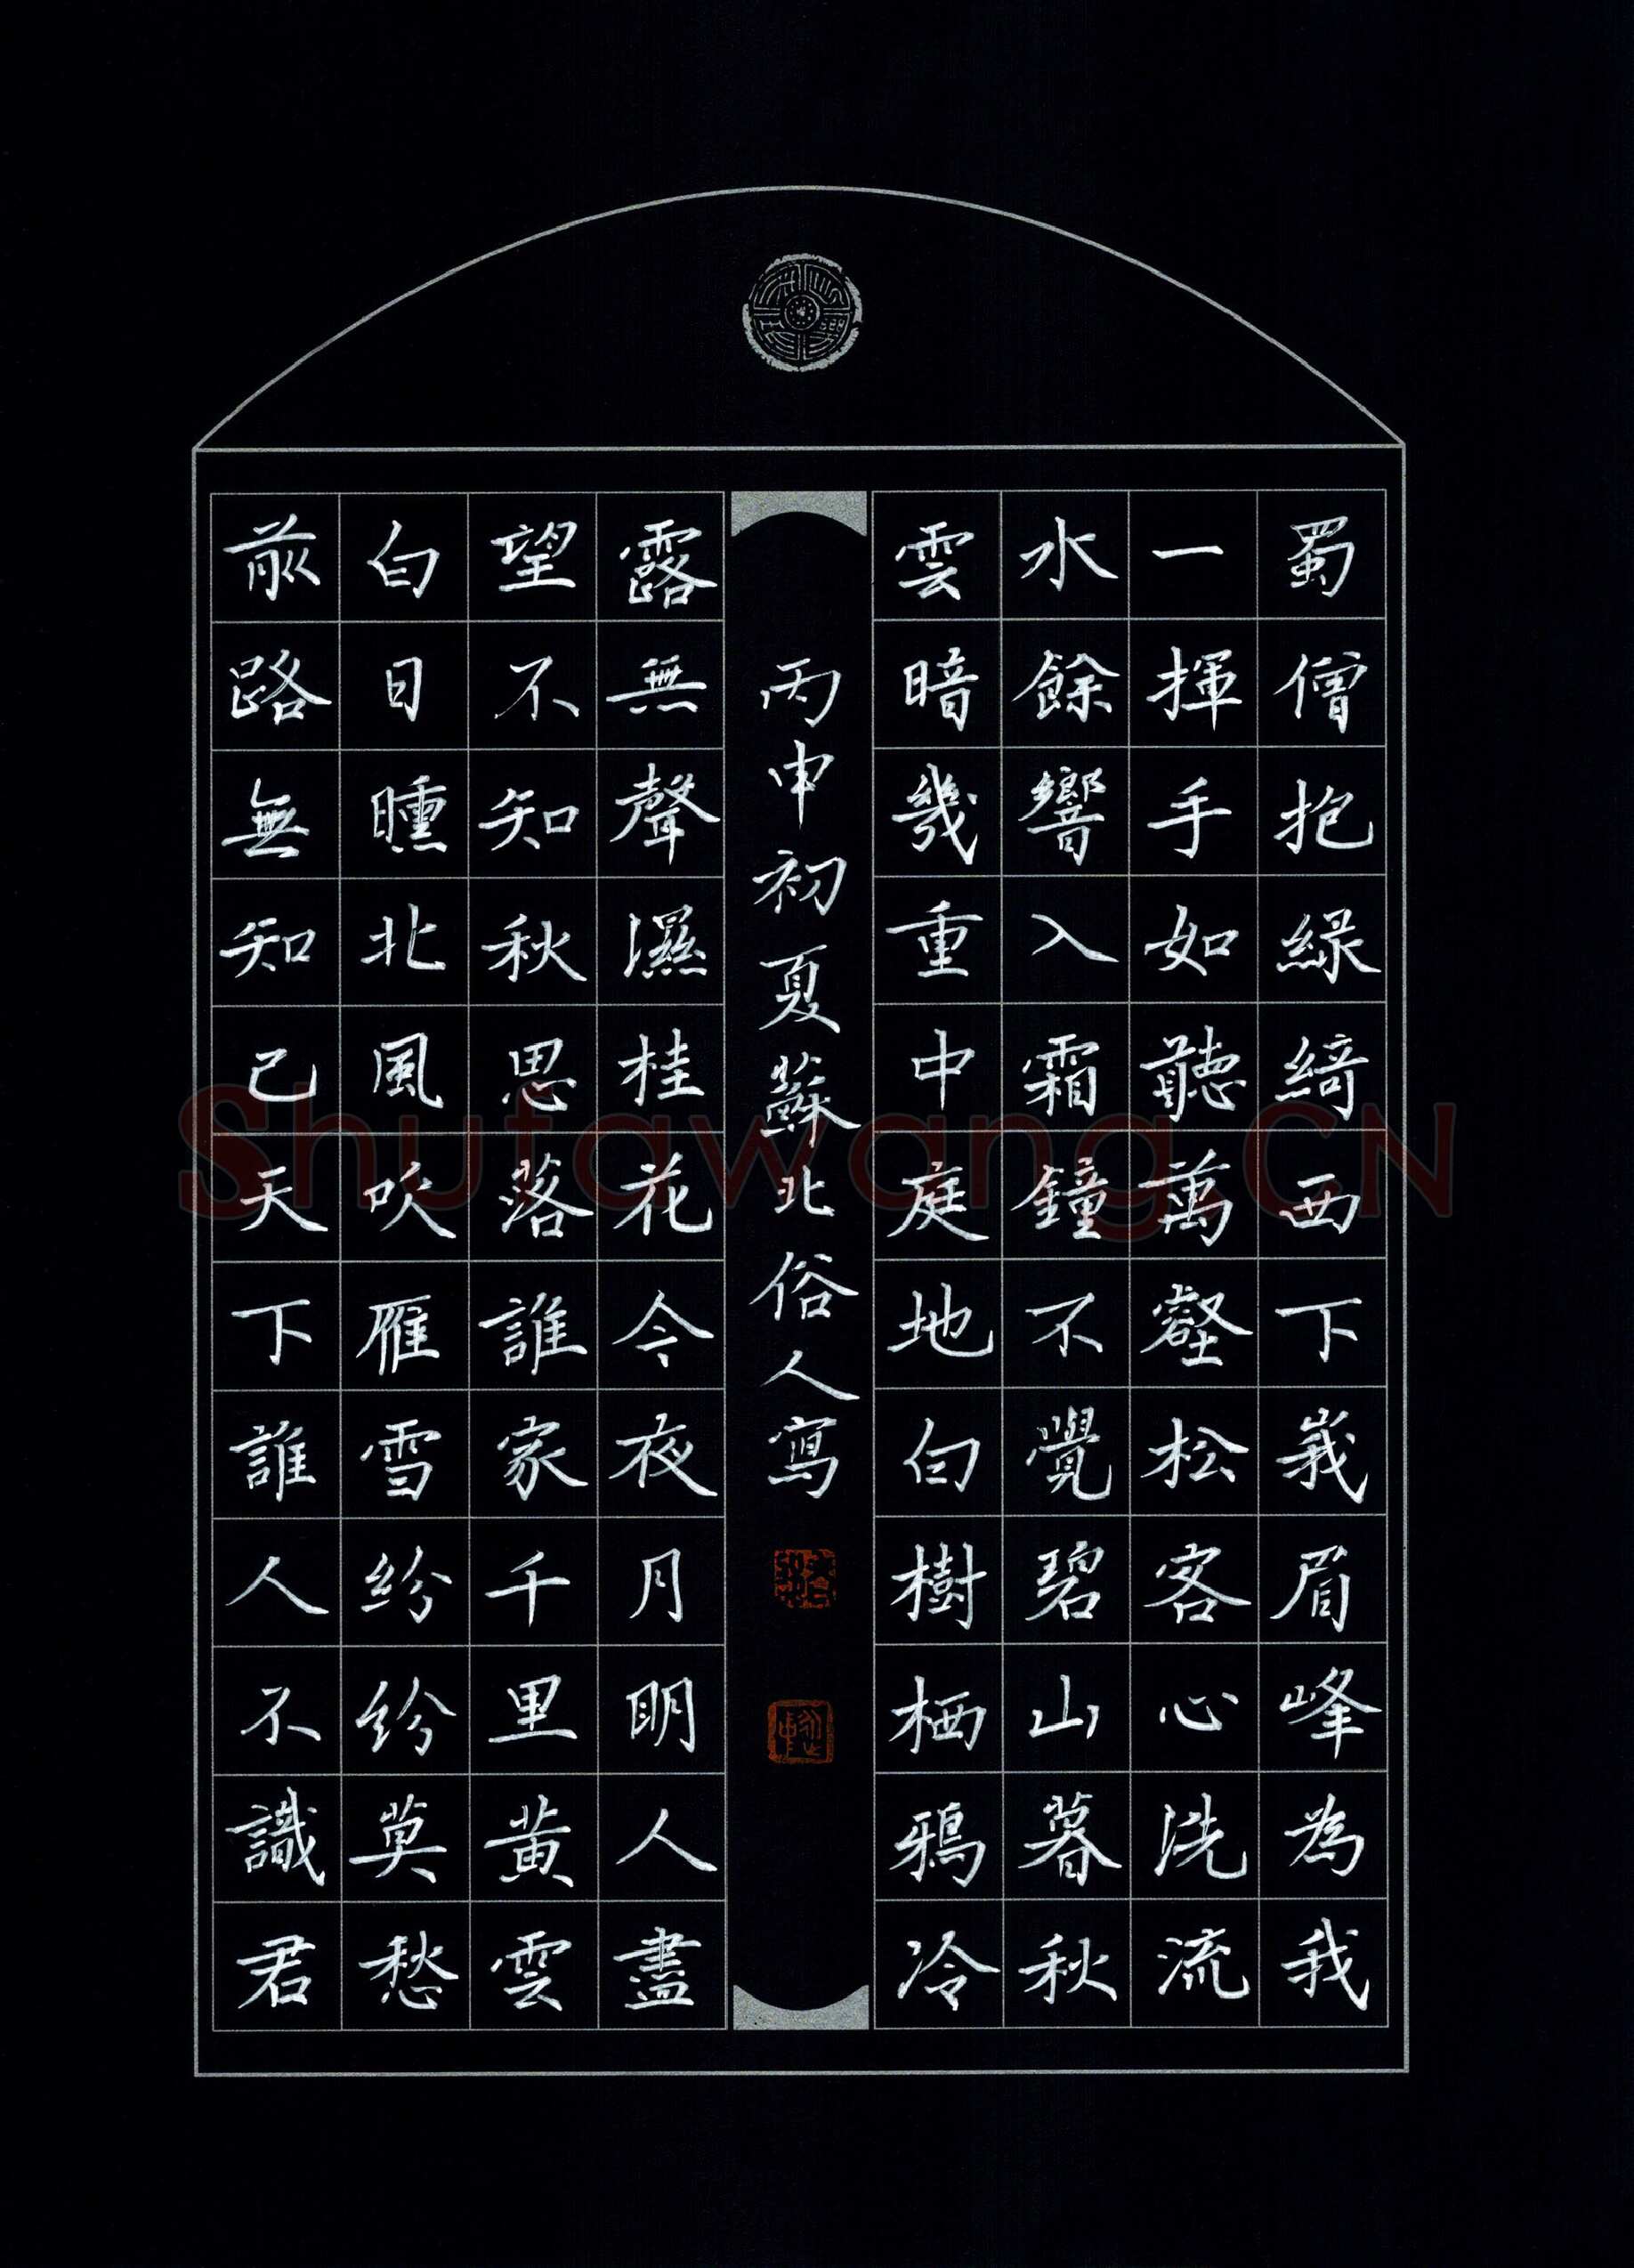 蜀僧抱綠綺西下峩眉峰為我
一揮手如聽萬壑松客心洗流
水餘響入霜鐘不覺碧山暮秋
雲暗幾重中庭地白樹栖鴉冷
丙申初夏蘇北俗人寫
露無聲濕桂花今夜月明人盡
望不知秋思落誰家千里黃雲
白日曛北風吹雁雪紛紛莫愁
前路無知己天下誰人不識君
Shufawang.CN